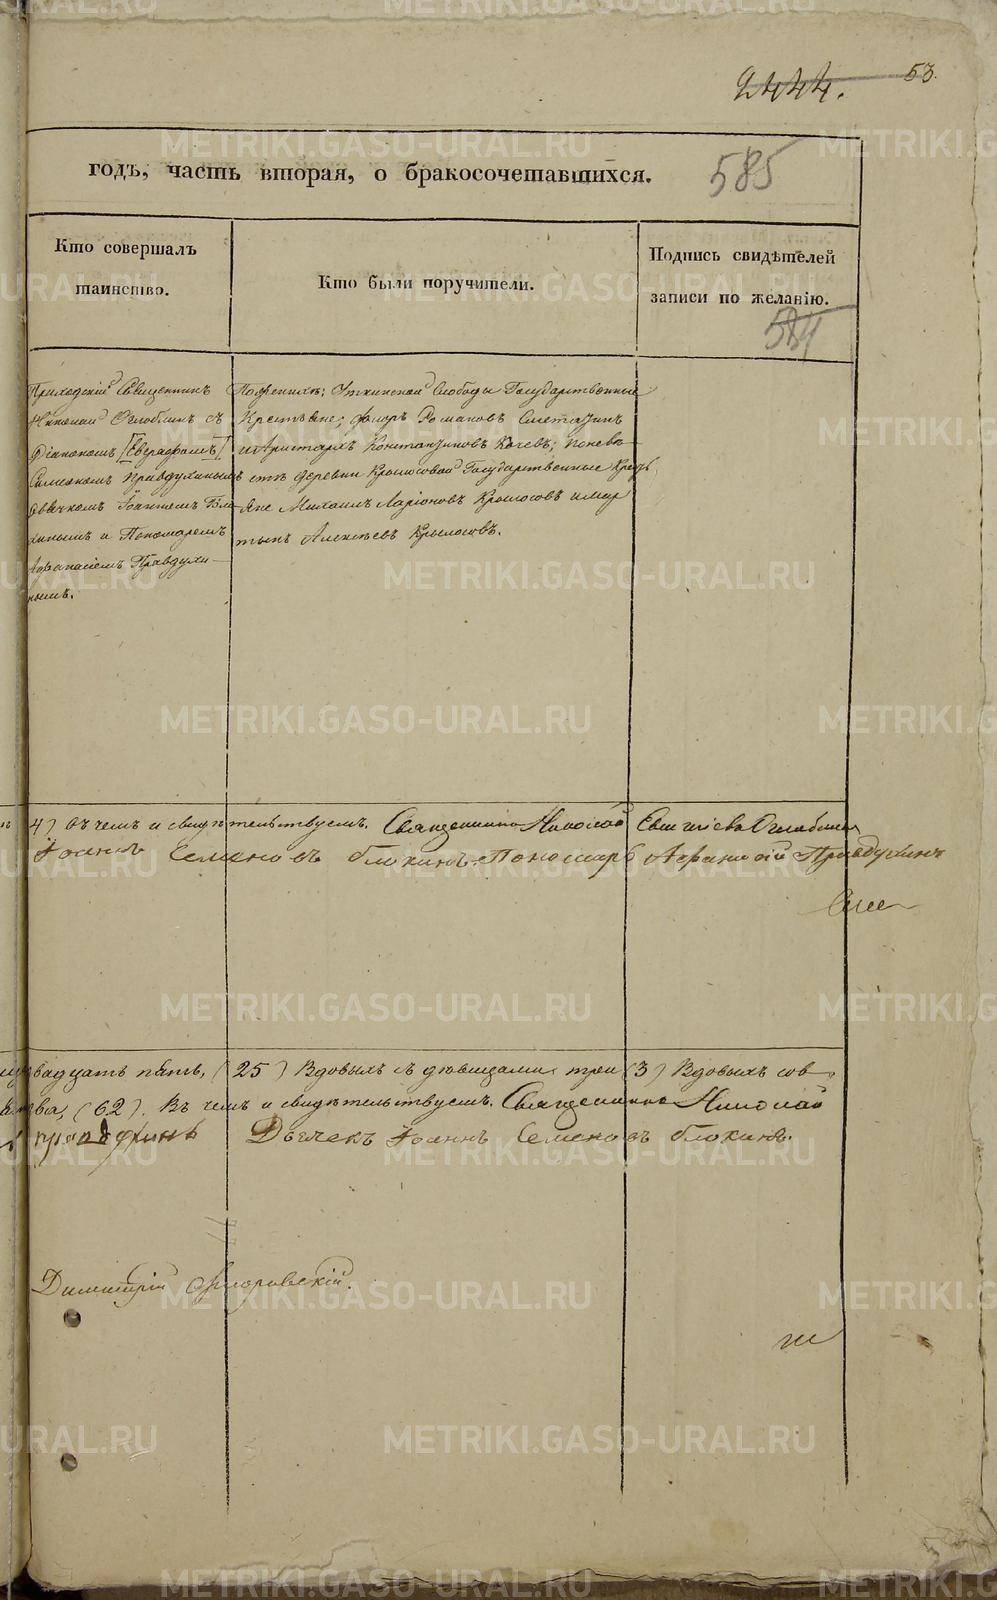 2444. 53.
годъ, часть вторая, о бракосочетавшихся. 585
Кто совершалъ таинство.
Кто были поручители.
Подпись свидѣтелей записи по желанію.
584
Приходскій Священникъ
Николай Оглоблинъ съ
Діакономъ [Евграфомъ]
Симеономъ Правдухинымъ
дьячкомъ Іоанномъ Бло
хинымъ и Пономаремъ
Афанасіемъ Правдухи-
нымъ.
По женихѣ; Уткинской Слободы Государственные
Крестьяне; Романовъ Сметанинъ
и Аристархъ Константиновъ Качевъ; по невѣ-
стѣ деревни Крылосовой Государственные Кресть
яне Михаилъ Ларіоновъ Крылосовъ и мар
тынъ Алексѣевъ Крылосовъ.
4) Въ чемъ и свидѣтельствуемъ. Священникъ Николай Оглоблинъ
Іоаннъ Семеновъ блохинъ Пономарь Афанасій Правдухинъ
двадцать пять, (25) Вдовыхъ съ дѣвицами три (3) Вдовыхъ со в
(62). Въ чемъ и свидѣтельствуемъ. Священникъ Николай
Дьячекъ Іоаннъ Семеновъ блохинъ.
Димитрій
METRIKI.GASO-URAL.RU